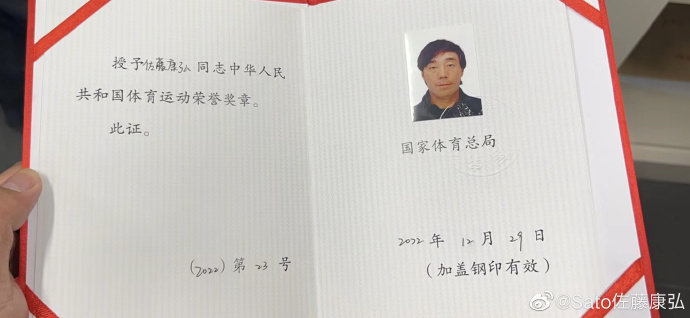 授予佐藤康弘同志中华人民
共和国体育运动荣誉奖章。
此证。
(2022)第 23 号
国家体育总局
2022 年 12 月 29 日
(加盖钢印有效)
@Sato佐藤康弘